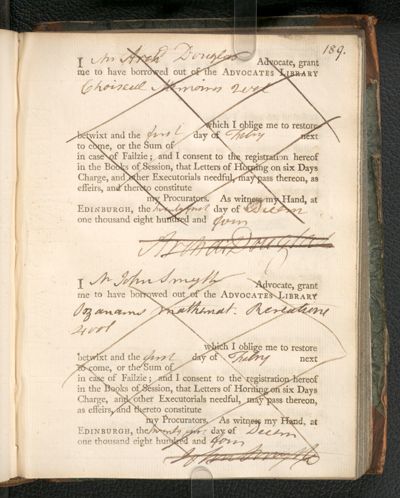 189.
I Mr Archd Douglas Advocate, grant
me to have borrowed out of the ADVOCATES LIBRARY
Choiseul Memoirs 2 vol
which I oblige me to restore
betwixt and the first day of Febry next
to come, or the Sum of
in case of Failzie; and I consent to the registration hereof
in the Books of Session, that Letters of Horning on six Days
Charge, and other Executorials needful, may pass thereon, as
effeirs, and thereto constitute
my Procurators. As witness my Hand, at
EDINBURGH, the day of Decem
one thousand eight hundred and four
Archd Douglas
I Mr John Smyth Advocate, grant
me to have borrowed out of the ADVOCATES LIBRARY
Ozanams mathemat. Recreations
4 vol
which I oblige me to restore
betwixt and the first day of Febry next
to come, or the Sum of
in case of Failzie; and I consent to the registration hereof
in the Books of Session, that Letters of Horning on six Days
Charge, and other Executorials needful, may pass thereon,
as effeirs, and thereto constitute
my Procurators. As witness my Hand, at
EDINBURGH, the day of Decem
one thousand eight hundred and four
John Smyth